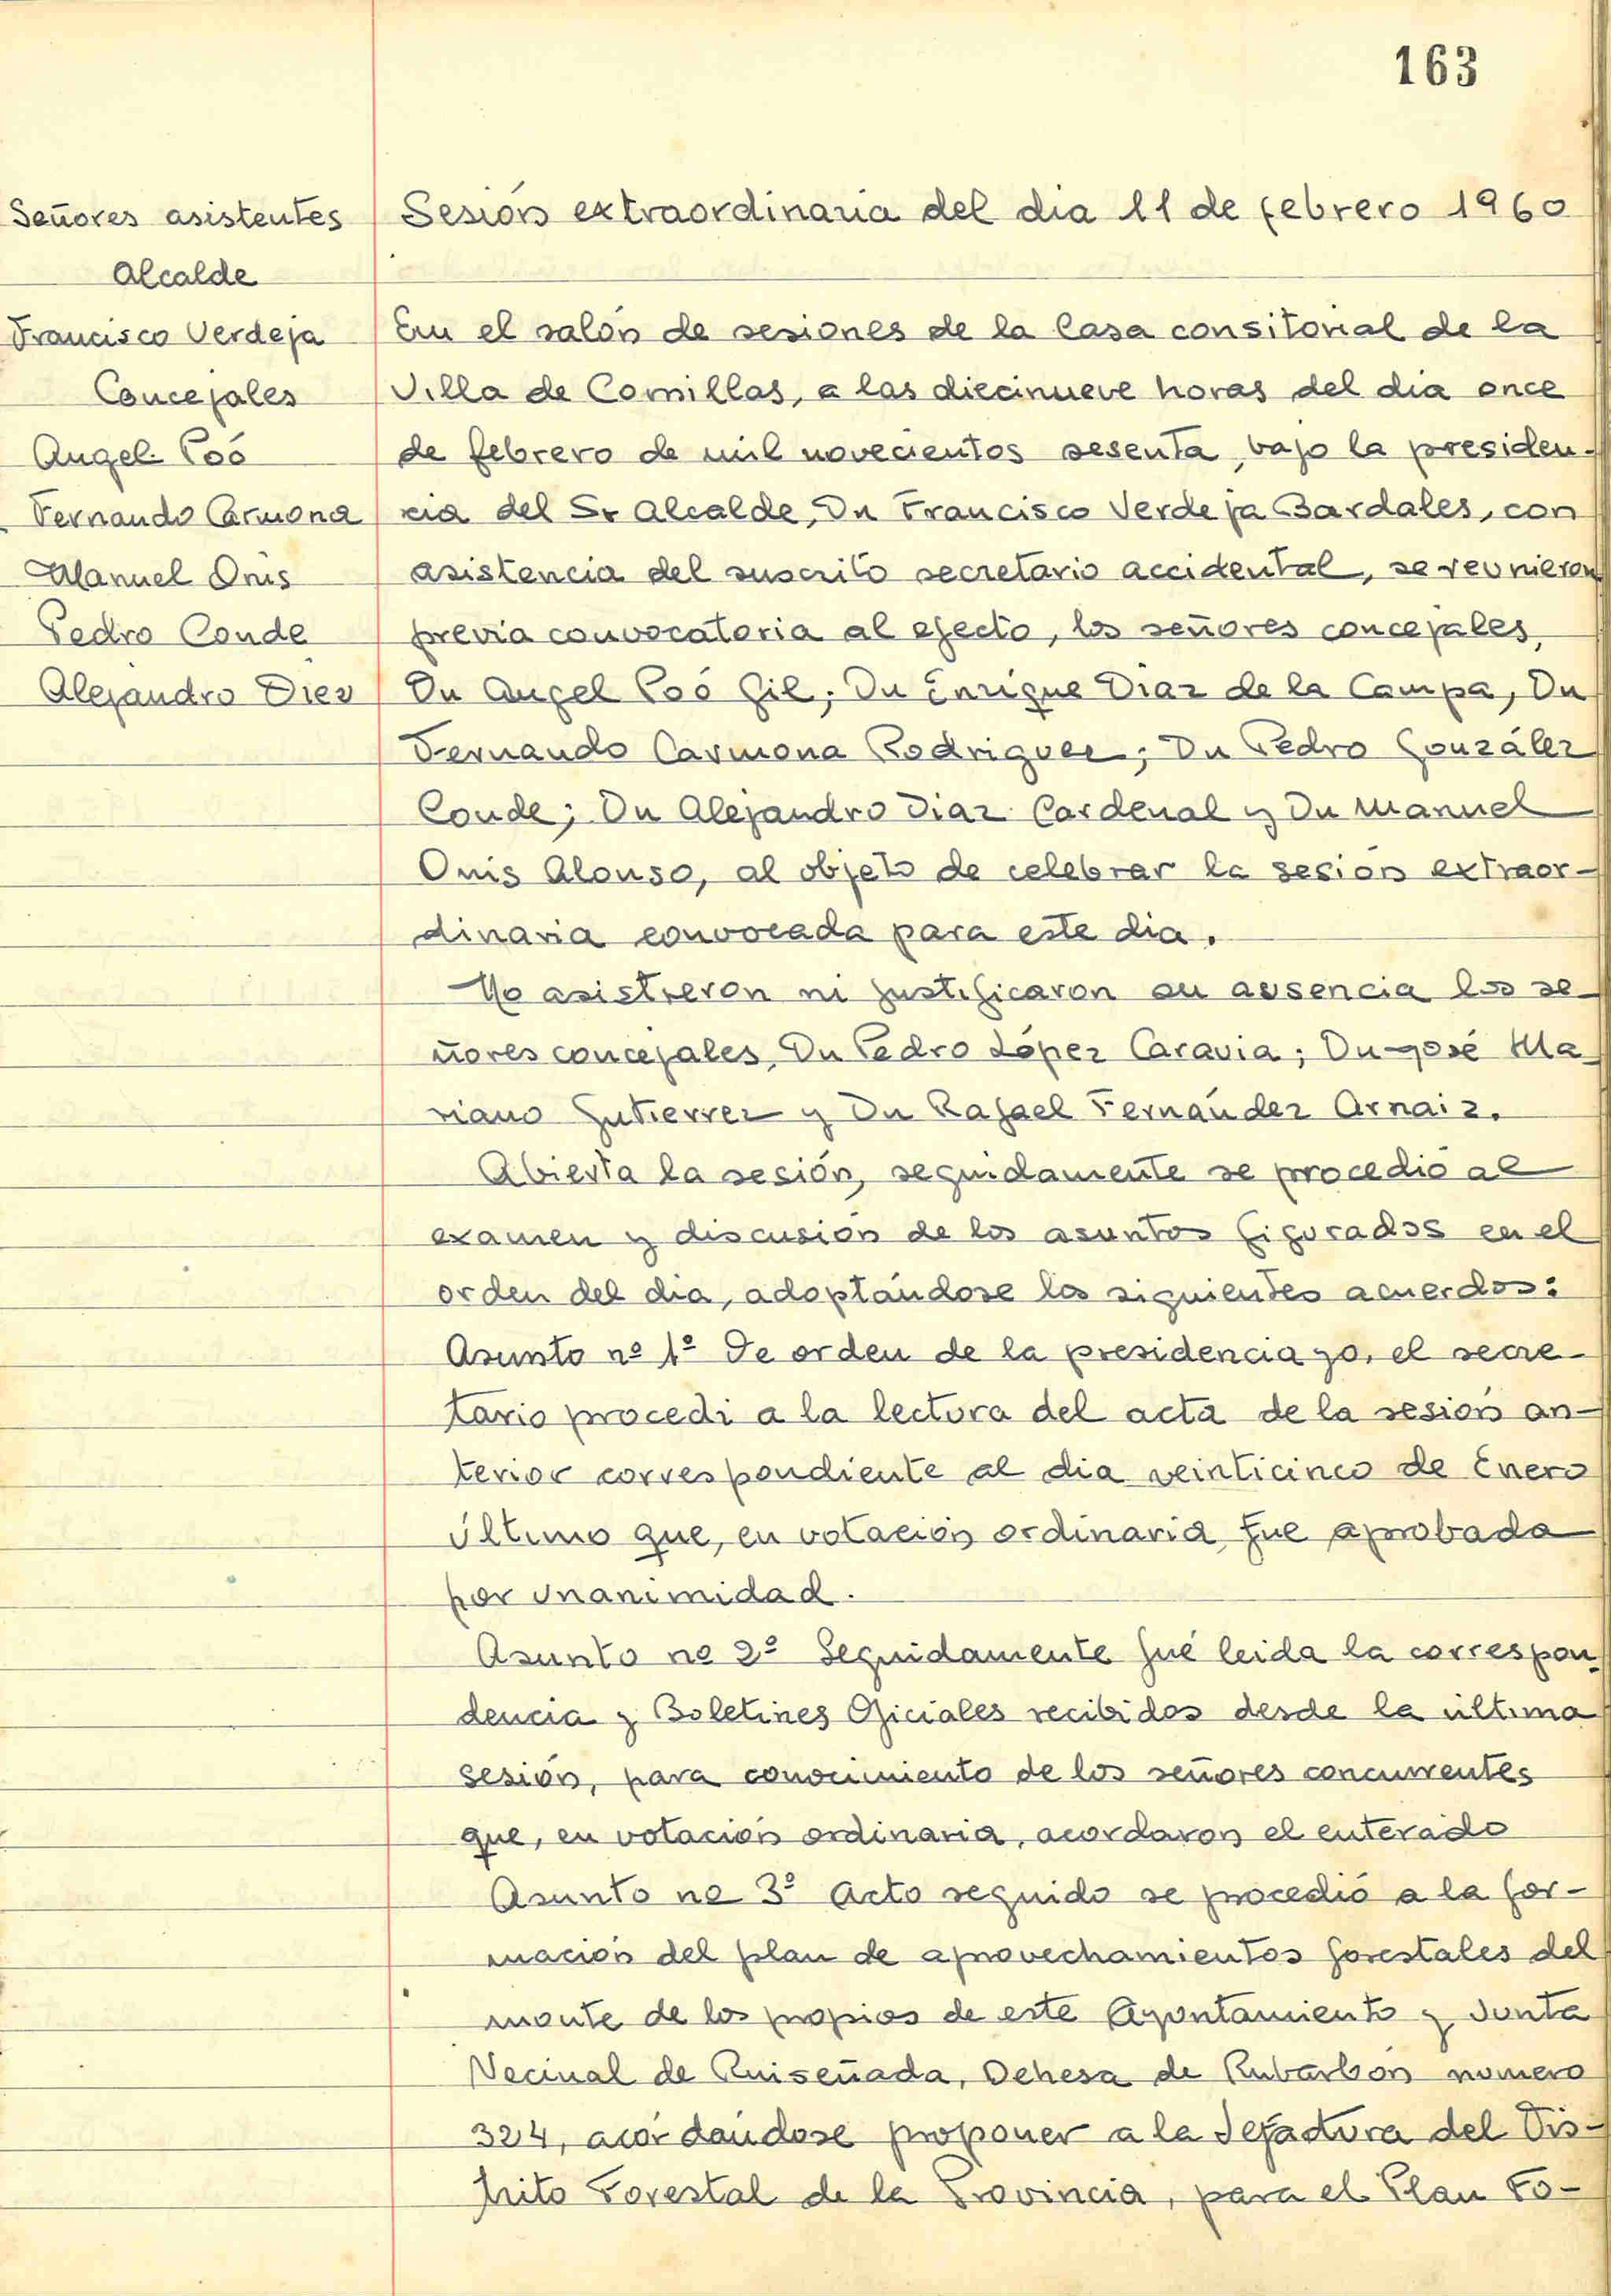 163
Señores asistentes
Alcalde
Francisco Verdeja
Concejales
Angel Poó
Fernando Carmona
Manuel Onis
Pedro Conde
Alejandro Diez
Sesión extraordinaria del dia 11 de febrero 1960
En el salón de sesiones de la Casa consitorial de la
Villa de Comillas, a las diecinueve horas del dia once
de febrero de mil novecientos sesenta, bajo la presiden-
cia del Sr Alcalde, Dn Francisco Verdeja Bardales, con
asistencia del suscrito secretario accidental, se reunieron
previa convocatoria al efecto, los señores concejales,
Dn Angel Poó Gil; Dn Enrique Diaz de la Campa, Dn
Fernando Carmona Rodriguez; Dn Pedro González
Conde; Dn Alejandro Diaz Cardenal y Dn Manuel
Onis Alonso, al objeto de celebrar la sesión extraor-
dinaria convocada para este dia.
No asistieron ni justificaron su ausencia los se
ñores concejales, Dn Pedro López Caravia; Dn José Ma
riano Gutierrez y Dn Rafael Fernández Arnaiz.
Abierta la sesión, seguidamente se procedió al
examen y discusión de los asuntos figurados en el
orden del dia, adoptándose los siguientes acuerdos:
Asunto nº 1º De orden de la presidencia yo, el secre-
tario procedi a la lectura del acta de la sesión an-
terior correspondiente al dia veinticinco de Enero
último que, en votación ordinaria, fue aprobada
por unanimidad.
Asunto nº 2º Seguidamente fué leida la correspon-
dencia y Boletines Oficiales recibidos desde la última
sesión, para conocimiento de los señores concurrentes
que, en votación ordinaria, acordaron el enterado
Asunto nº 3º Acto seguido se procedió a la for-
mación del plan de aprovechamientos forestales del
monte de los propios de este Ayuntamiento y Junta
Vecinal de Ruiseñada, Dehesa de Rubarbón numero
324, acordándose proponer a la Jefactura del Dis-
trito Forestal de la Provincia, para el Plan Fo-